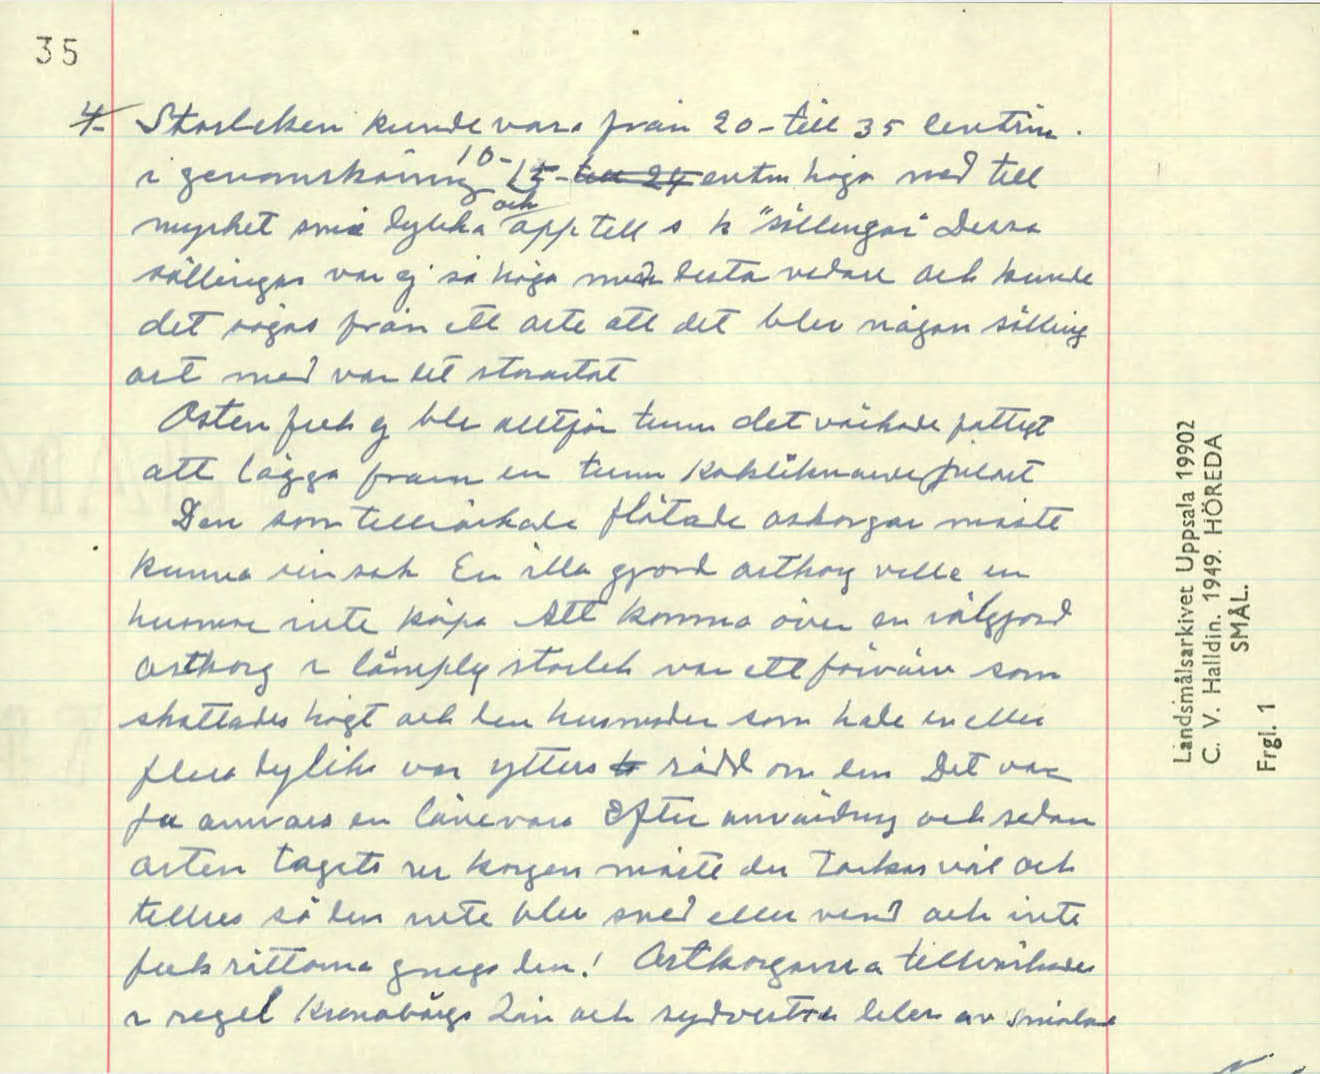 35
4. Storleken kunde vara från 20- till 35 centim.
i genomskärning 10-15- till 24 centm höga med till
mycket små dylika och upp till s k "sållingar" Dessa
sållingar var ej så höga men desto vidare och kunde
det sägas från ett oste att det blev någon sålling
ost med var det storartat
Osten fick ej bli alltför tunn det värkade fattigt
att lägga fram en tunn kakliknande julost
Den som tillvärkade flätade ostkorgar måste
kunna sin sak En illa gjord ostkorg ville en
husmor inte köpa Att komma över en välgjord
ostkorg i lämplig storlek var ett förvärv som
skattades högt och den husmoder som hade en eller
flera dylika var ytterst rädd om den Det var
ju annars en lånevara Efter användning och sedan
osten tagits ur korgen måste den torkas väl och
tillses så den inte blev sned eller vind och inte
fick råttorna gnaga den! Ostkorgarna tillvärkades
i regel Kronobärgs Län och sydvestra delen av Småland
Landsmålsarkivet Uppsala 19902
C. V. Halldin. 1949. HÖREDA
SMÅL.
Frgl. 1